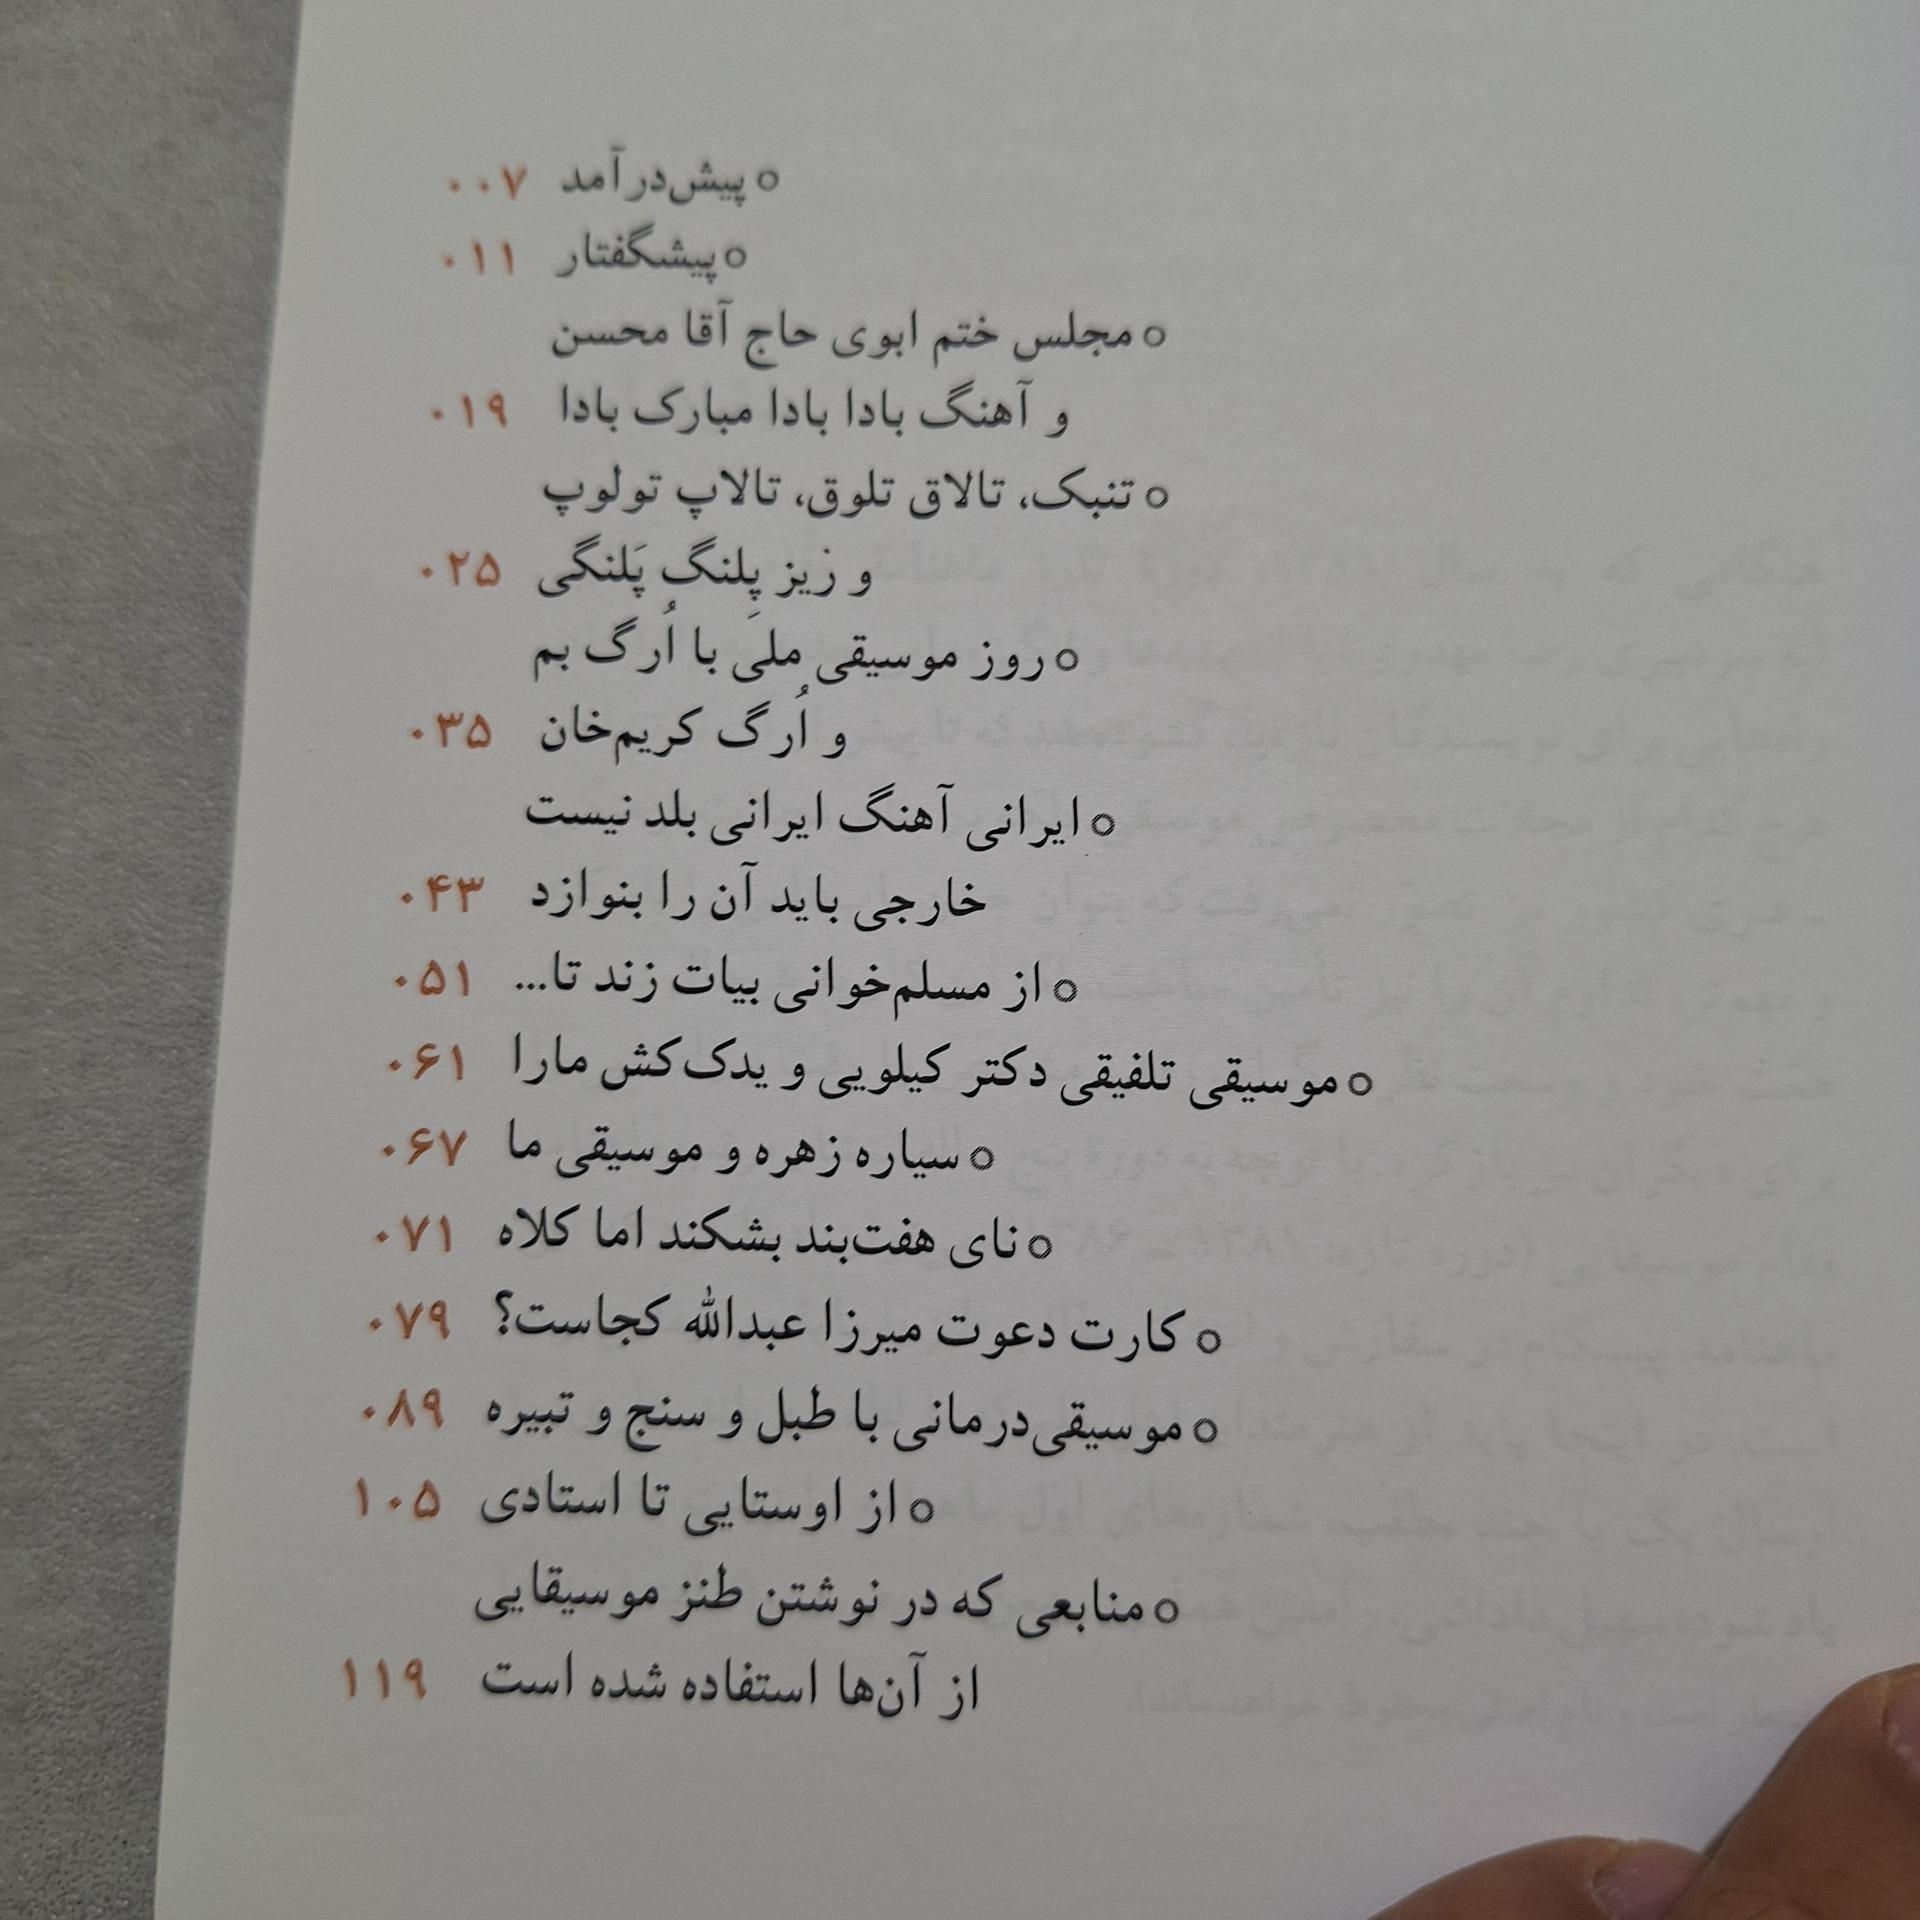 ○ پیش‌درآمد ۰۰۷
○ پیشگفتار ۰۱۱
○ مجلس ختم ابوی حاج آقا محسن
و آهنگ بادا بادا مبارک بادا ۰۱۹
○ تنبک، تالاق تلوق، تالاپ تولوپ
و زیز پِلنگِ پَلنگی ۰۲۵
○ روز موسیقی ملی با اُرگ بم
و اُرگ کریم‌خان ۰۳۵
○ ایرانی آهنگ ایرانی بلد نیست
خارجی باید آن را بنوازد ۰۴۳
○ از مسلم‌خوانی بیات زند تا... ۰۵۱
○ موسیقی تلفیقی دکتر کیلویی و یدک‌کش مارا ۰۶۱
○ سیاره زهره و موسیقی ما ۰۶۷
○ نای هفت‌بند بشکند اما کلاه ۰۷۱
○ کارت دعوت میرزا عبدالله کجاست؟ ۰۷۹
○ موسیقی‌درمانی با طبل و سنج و تبیره ۰۸۹
○ از اوستایی تا استادی ۱۰۵
○ منابعی که در نوشتن طنز موسیقایی
از آن‌ها استفاده شده است ۱۱۹